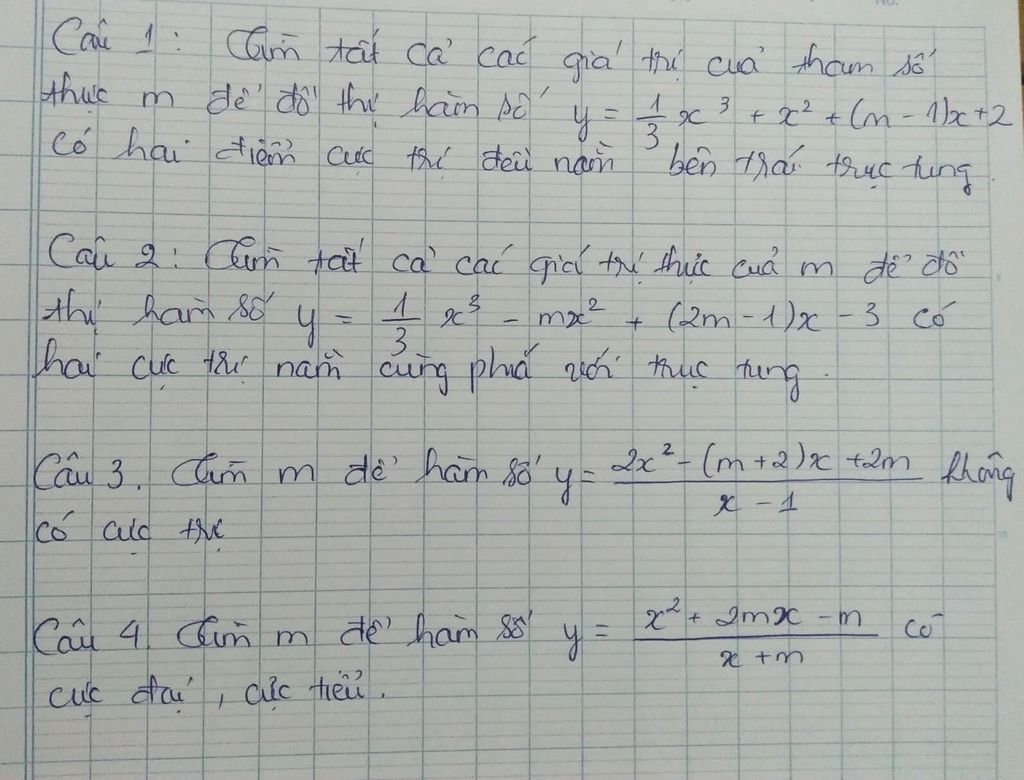 Câu 1: Tìm tất cả các giá trị của tham số
thực m để đồ thị hàm số y = 1/3 x³ + x² + (m - 1)x + 2
có hai điểm cực trị đều nằm bên trái trục tung.
Câu 2: Tìm tất cả các giá trị thực của m để đồ
thị hàm số y = 1/3 x³ - mx² + (2m - 1)x - 3 có
hai cực trị nằm cùng phía với trục tung.
Câu 3. Tìm m để hàm số y = (2x² - (m + 2)x + 2m)/(x - 1) không
có cực trị
Câu 4. Tìm m để hàm số y = (x² + 2mx - m)/(x + m) có
cực đại, cực tiểu.